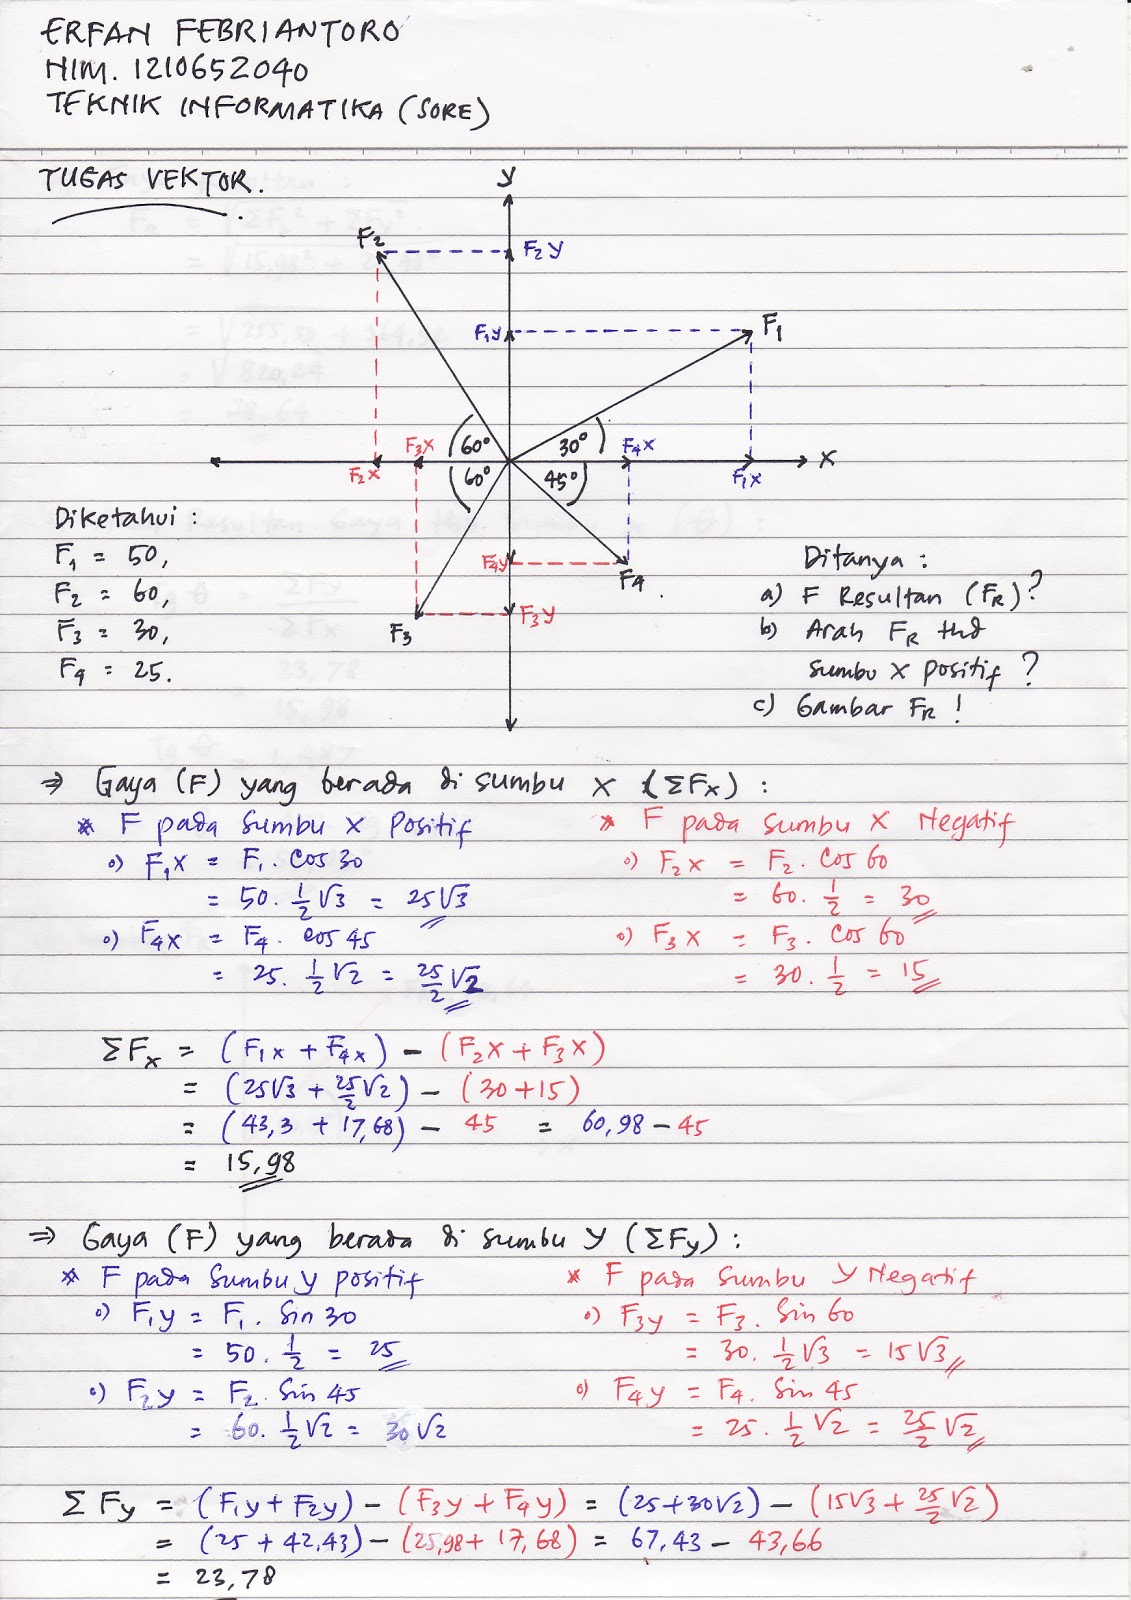 ERFAN FEBRIANTORO
NIM. 1210652040
TEKNIK INFORMATIKA (SORE)
TUGAS VEKTOR.
y
F2
F2y
F1y
F1
F3x
60°
30°
F4x
x
F2x
60°
45°
F1x
F4y
F4
F3
F3y
Diketahui :
F1 = 50,
F2 = 60,
F3 = 30,
F4 = 25.
Ditanya :
a) F Resultan (FR)?
b) Arah FR thd
sumbu x positif ?
c) Gambar FR !
⇒ Gaya (F) yang berada di sumbu x (ΣFx) :
* F pada sumbu x Positif
o) F1x = F1 . cos 30
= 50. 1/2 √3 = 25√3
o) F4x = F4 . cos 45
= 25. 1/2 √2 = 25/2 √2
* F pada sumbu x Negatif
o) F2x = F2 . cos 60
= 60. 1/2 = 30
o) F3x = F3 . cos 60
= 30. 1/2 = 15
ΣFx = (F1x + F4x) - (F2x + F3x)
= (25√3 + 25/2 √2) - (30 + 15)
= (43,3 + 17,68) - 45 = 60,98 - 45
= 15,98
⇒ Gaya (F) yang berada di sumbu y (ΣFy) :
* F pada sumbu y positif
o) F1y = F1 . Sin 30
= 50. 1/2 = 25
o) F2y = F2 . Sin 45
= 60. 1/2 √2 = 30√2
* F pada sumbu y Negatif
o) F3y = F3 . Sin 60
= 30. 1/2 √3 = 15√3
o) F4y = F4 . Sin 45
= 25. 1/2 √2 = 25/2 √2
Σ Fy = (F1y + F2y) - (F3y + F4y) = (25+30√2) - (15√3 + 25/2 √2)
= (25 + 42,43) - (25,98 + 17,68) = 67,43 - 43,66
= 23,78